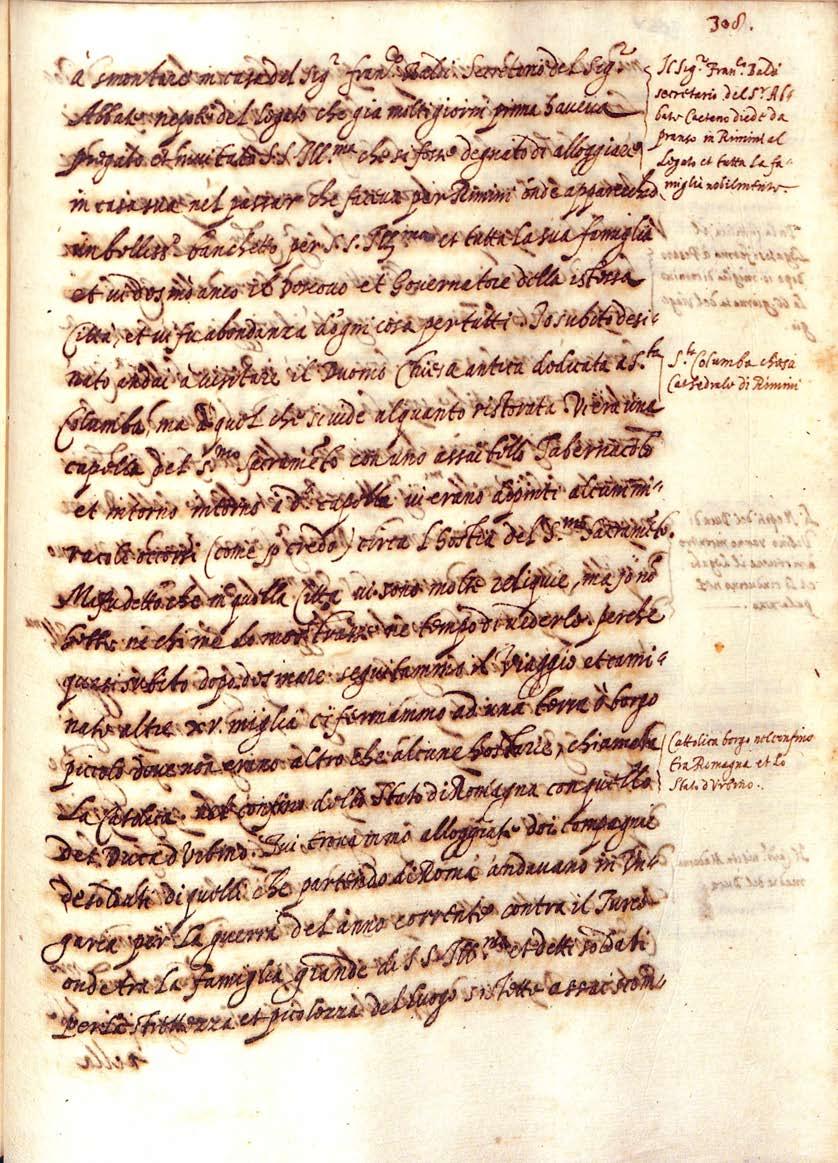 308.
à smontare in casa del Sigr. Franco. Baldi Secretario del Sigr.
Abbate nepote del Legato che già molti giorni prima haveva
pregato et invitato S.S. Illma. che si fosse degnato di alloggiare
in casa sua nel passar che faceva per Rimini onde apparechiò
un belliss.o banchetto per S.S. Illma et tutta la sua famiglia
et vi desinò anco il Vescovo et Governatore della istessa
Città, et vi fu abondanza d'ogni cosa per tutti. Io subito desi-
nato andai à visitare il Duomo Chiesa antica dedicata a S.ta
Columba, ma à quel che si vide alquanto ristorata. Vi era una
capella del S.mo Sacramēto con uno assai bello Tabernacolo
et intorno intorno à d.a capella vi erano depinti alcuni mi-
racoli occorsi (come io credo) circa l'hostia del S.mo Sacramēto.
Mi fu detto che in quella Città vi sono molte reliquie, ma io nō
hebbe ne chi me lo mostrasse ne tempo di vederle perche
quasi subito dopo desinare seguitammo il viaggio et cami-
nate altre xv. miglia ci fermammo ad una terra ò borgo
piccolo dove non erano altro che alcune hostarie, chiamata
La Catolica nel confino dello Stato di Romagna con quello
del Duca d'Urbino. Qui trovammo alloggiate doi compagnie
de soldati di quelli che partendo di Roma andavano in Un-
garia per la guerra del anno corrente contra il Turco
onde tra la famiglia grande di S.S. Ill.ma et detti soldati
per la strettezza et picolezza del luogo si stette assai scom-
Il Sigr. Franco. Baldi
secretario del Sr. Ab-
bate Caetano diede da
pranso in Rimini al
Legato et tutta la fa-
miglia nobilmente.
S.ta Columba chiesa
Cathedrale di Rimini
Cattolica borgo nel confino
tra Romagna et lo
Stato d'Urbino.